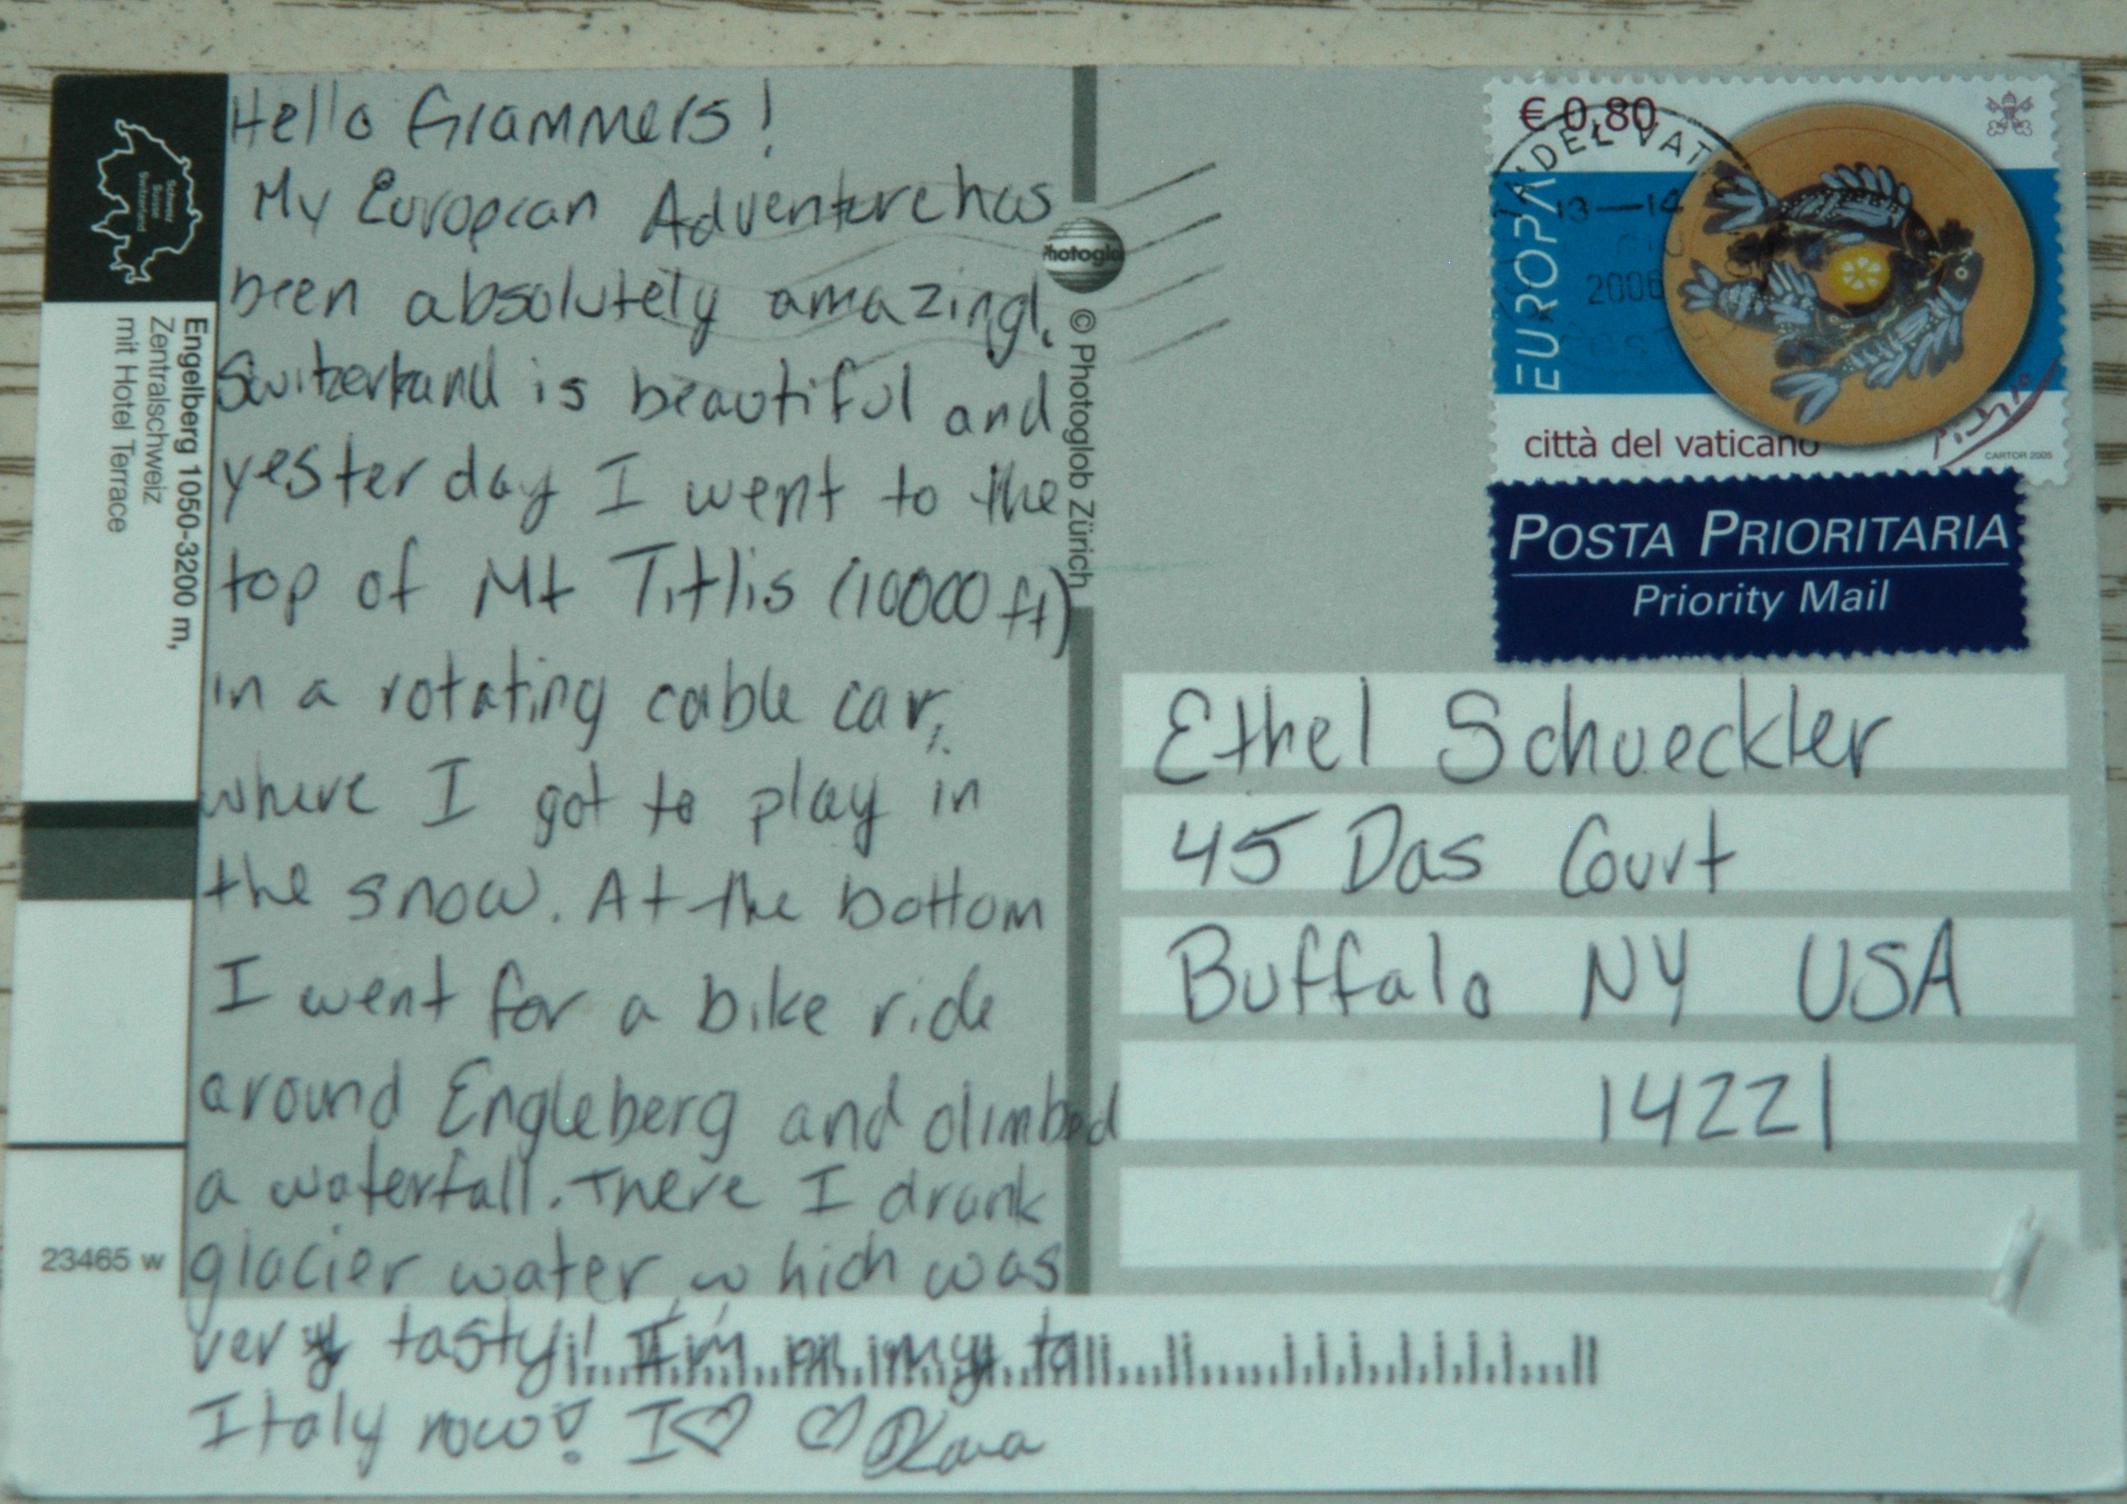 Hello Grammers!
My European Adventure has
been absolutely amazing!.
Switzerland is beautiful and
yesterday I went to the
top of Mt Titlis (10000 ft)
in a rotating cable car,
where I got to play in
the snow. At the bottom
I went for a bike ride
around Engleberg and climbed
a waterfall. There I drank
glacier water, which was
very tasty! I'm on my to
Italy now! I♡ ♡ Kara
Schweiz
Suisse
Switzerland
Engelberg 1050-3200 m,
Zentralschweiz
mit Hotel Terrace
23465 w
Photoglo
© Photoglob Zürich
€ 0,80
DEL VAT
13-14
2006
EUROPA
città del vaticano
CARTOR 2005
POSTA PRIORITARIA
Priority Mail
Ethel Schueckler
45 Das Court
Buffalo NY USA
14221